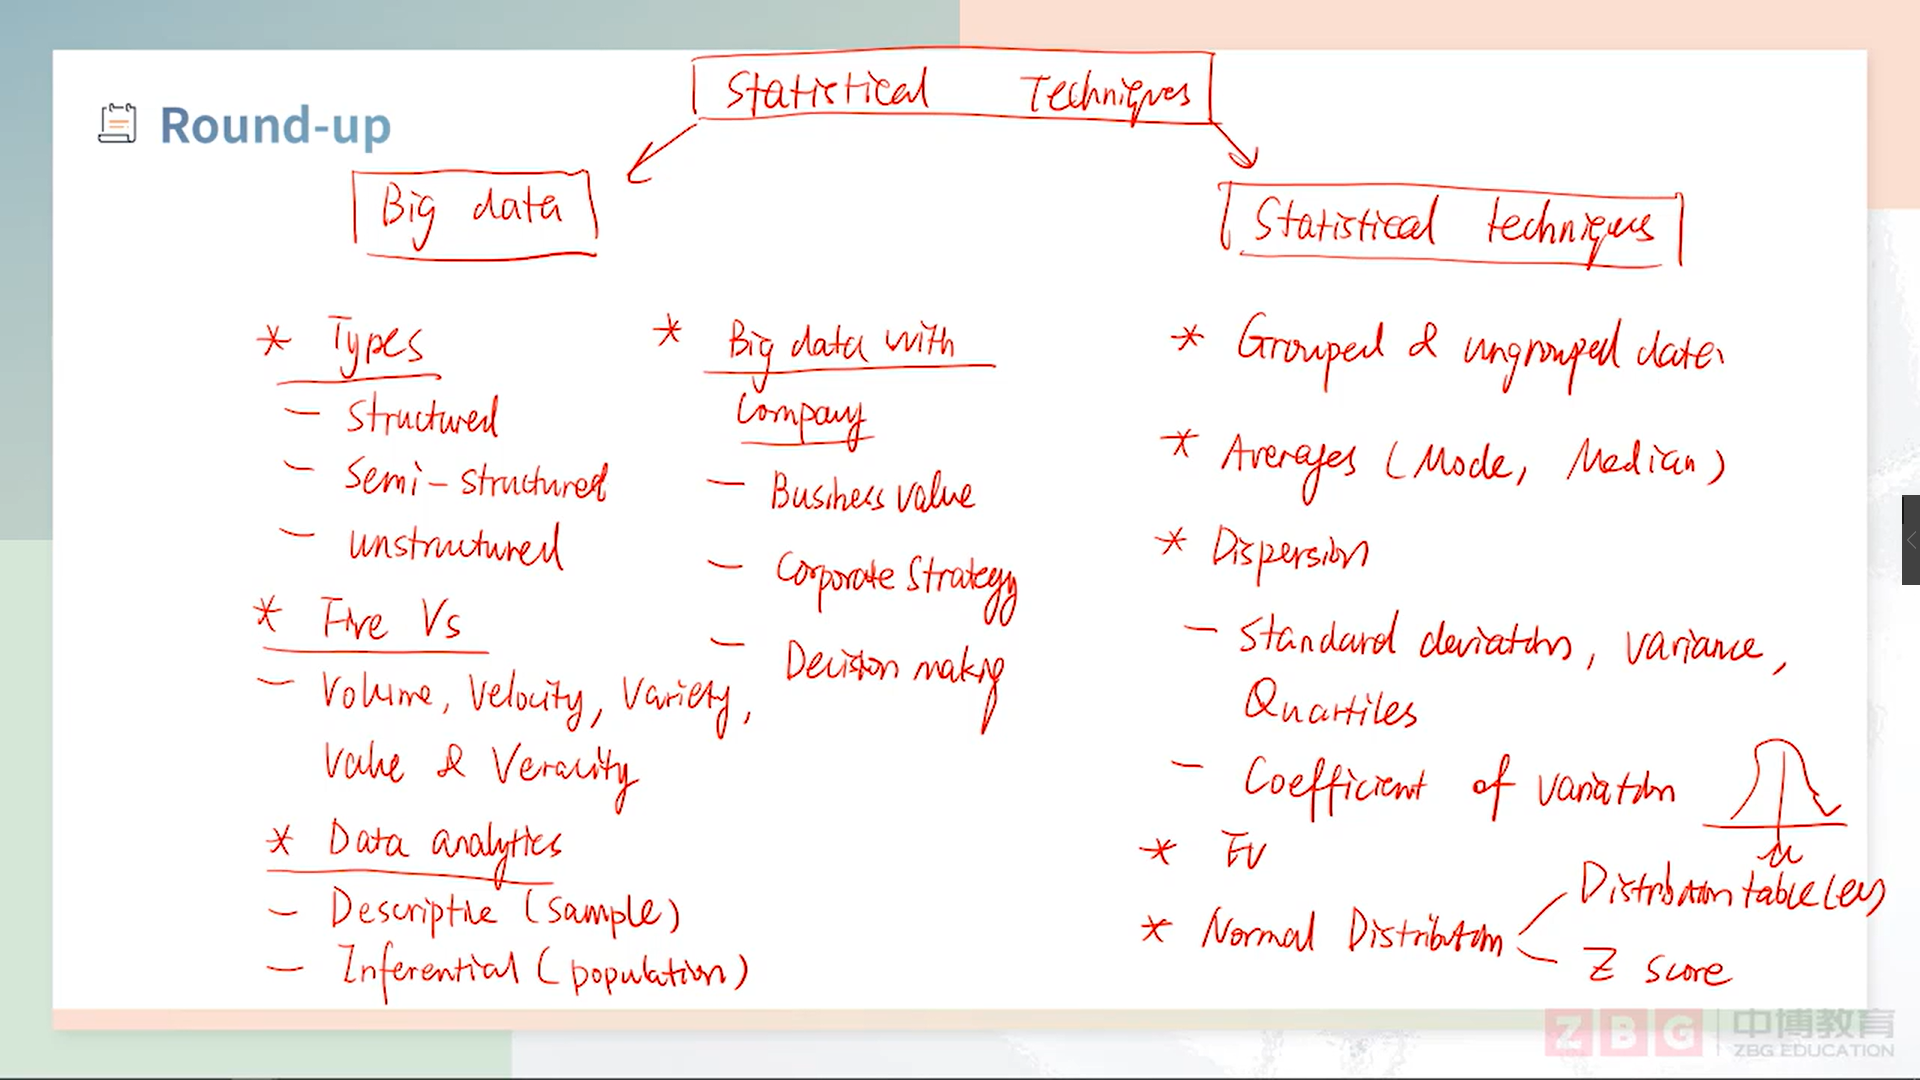 Statistical Techniques
Round-up
Big data
* Types
- Structured
- Semi-structured
- unstructured
* Five Vs
- Volume, Velocity, Variety,
Value & Veracity
* Data analytics
- Descriptive (sample)
- Inferential (population)
* Big data with
Company
- Business value
- Corporate Strategy
- Decision making
Statistical techniques
* Grouped & ungrouped data
* Averages (Mode, Median)
* Dispersion
- Standard deviation, variance,
Quartiles
- Coefficient of variation
μ
* EV
* Normal Distribution
Distribution table
Z score
ZBG 中博教育
ZBG EDUCATION